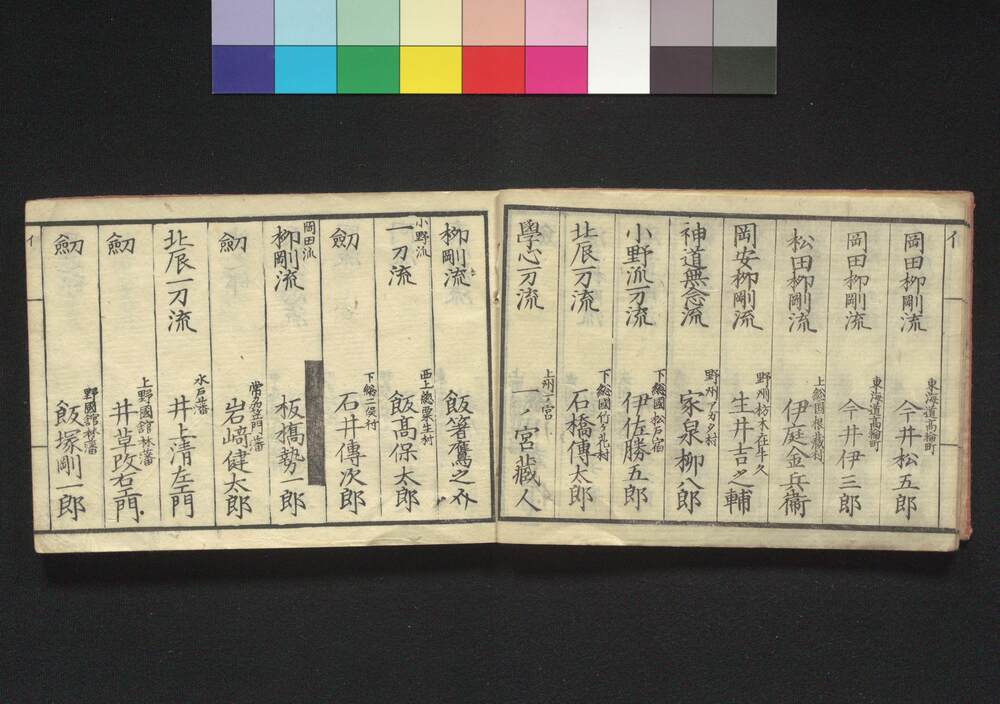 イ
岡田柳剛流 東海道高輪町 今井松五郎
岡田柳剛流 東海道高輪町 今井伊三郎
松田柳剛流 上総国根蔵村 伊庭金兵衛
岡安柳剛流 野州栃木在牛久 生井吉之輔
神道無念流 野州アカタ村 家泉柳八郎
小野派一刀流 下総國松戸宿 伊佐勝五郎
北辰一刀流 下総國竹ケ花村 石橋傳太郎
學心一刀流 上州一ノ宮 一ノ宮藏人
柳剛流 飯箸鷹之
小野派 一刀流 西上総粟生村 飯髙保太郎
劔 下総二俣村 石井傳次郎
岡田流 柳剛流 板橋勢一郎
劔 岩﨑健太郎
北辰一刀流 水戸藩 井上清左エ門
劔 上野國舘林藩 井草改右エ門
劔 野國舘林藩 飯塚剛一郎
イ